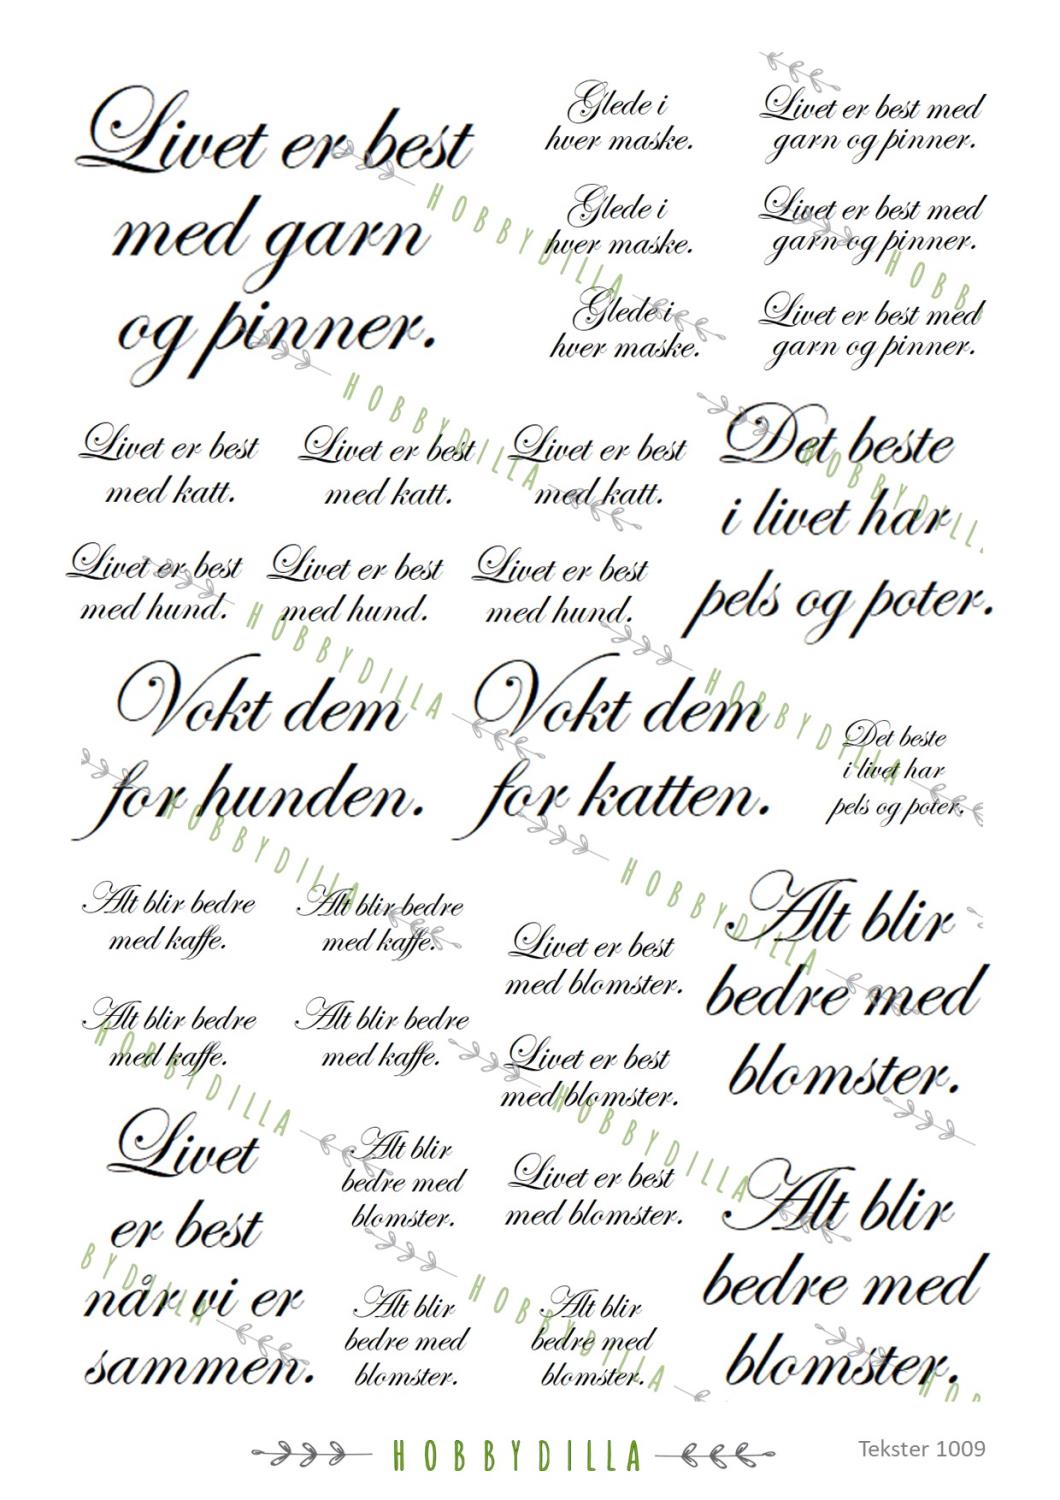 Livet er best
med garn
og pinner.
Glede i
hver maske.
Glede i
hver maske.
Glede i
hver maske.
Livet er best med
garn og pinner.
Livet er best med
garn og pinner.
Livet er best med
garn og pinner.
Livet er best
med katt.
Livet er best
med katt.
Livet er best
med katt.
Det beste
i livet har
pels og poter.
Livet er best
med hund.
Livet er best
med hund.
Livet er best
med hund.
Vokt dem
for hunden.
Vokt dem
for katten.
Det beste
i livet har
pels og poter.
Alt blir bedre
med kaffe.
Alt blir bedre
med kaffe.
Alt blir bedre
med kaffe.
Alt blir bedre
med kaffe.
Livet er best
med blomster.
Livet er best
med blomster.
Livet er best
med blomster.
Alt blir
bedre med
blomster.
Livet
er best
når vi er
sammen.
Alt blir
bedre med
blomster.
Alt blir
bedre med
blomster.
Alt blir
bedre med
blomster.
Alt blir
bedre med
blomster.
HOBBYDILLA
HOBB
HOBBYDILLA
HOBBYDILL
HOBBYDILLA
HOBBYDILLA
HOBBYDILLA
HOBBYDILLA
HOBBYDILLA
HOBBYDILLA
BYDILLA
HOBBYDILLA
HOB
HOBBYDILLA
Tekster 1009